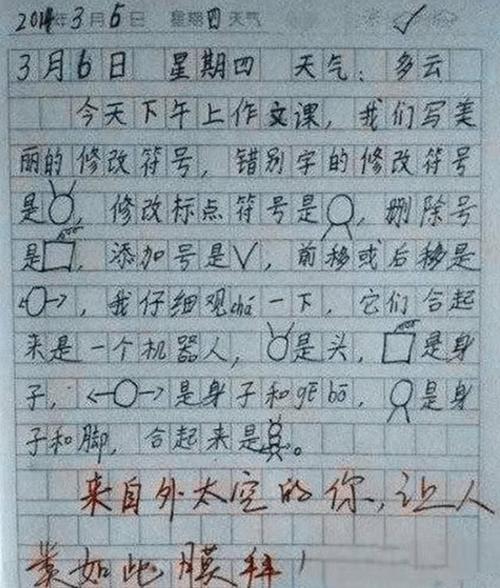 2014年3月6日 星期四天气
3月6日 星期四 天气：多云
今天下午上作文课，我们写美
丽的修改符号，错别字的修改符号
是，修改标点符号是，删除号
是，添加号是∨，前移或后移是
，我仔细观chá一下，它们合起
来是一个机器人，是头，是身
子，是身子和gē bō，是身
子和脚，合起来是。
来自外太空的你，让人
类如此膜拜！